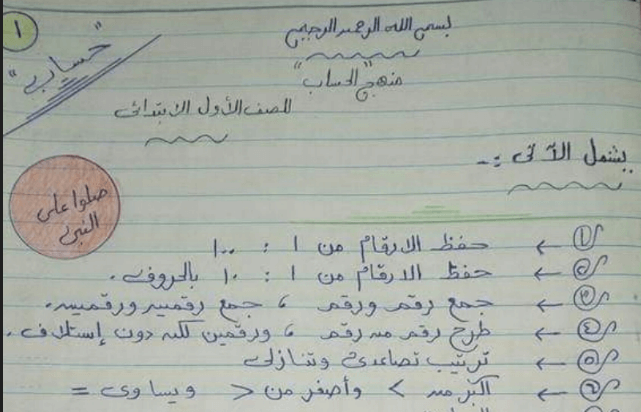 ١
بسم الله الرحمن الرحيم
"حساب"
منهج "الحساب"
للصف الأول الابتدائى
يشمل الآتى :-
صلوا على
النبى
١ ← حفظ الارقام من ١ : ١٠٠
٢ ← حفظ الارقام من ١ : ١٠ بالحروف.
٣ ← جمع رقم ورقم ، جمع رقمين ورقمين.
٤ ← طرح رقم من رقم ، ورقمين لكن دون إستلاف.
٥ ← ترتيب تصاعدى وتنازلى
٦ ← أكبر من > وأصغر من < ويساوى =